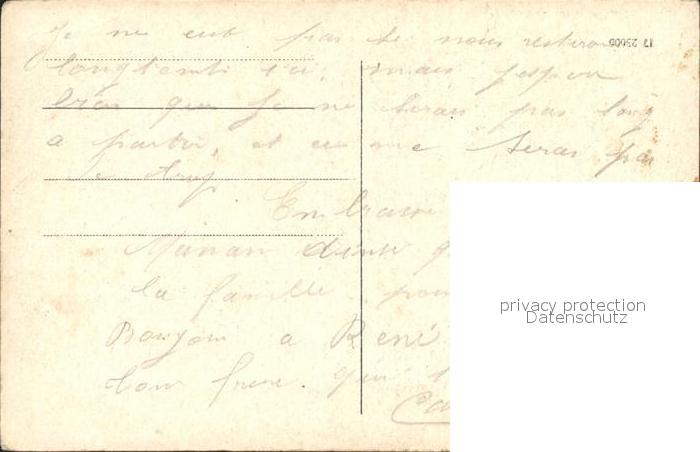 Je ne     pas si nous resterons
longtemps ici, mais j'espère
bien que je ne serais pas long
a partir, et ce ne seras pas
de trop
Embrasse
Maman ainsi q
la famille pour
Bonjour a René
ton frère. qui t
17 25005
privacy protection
Datenschutz